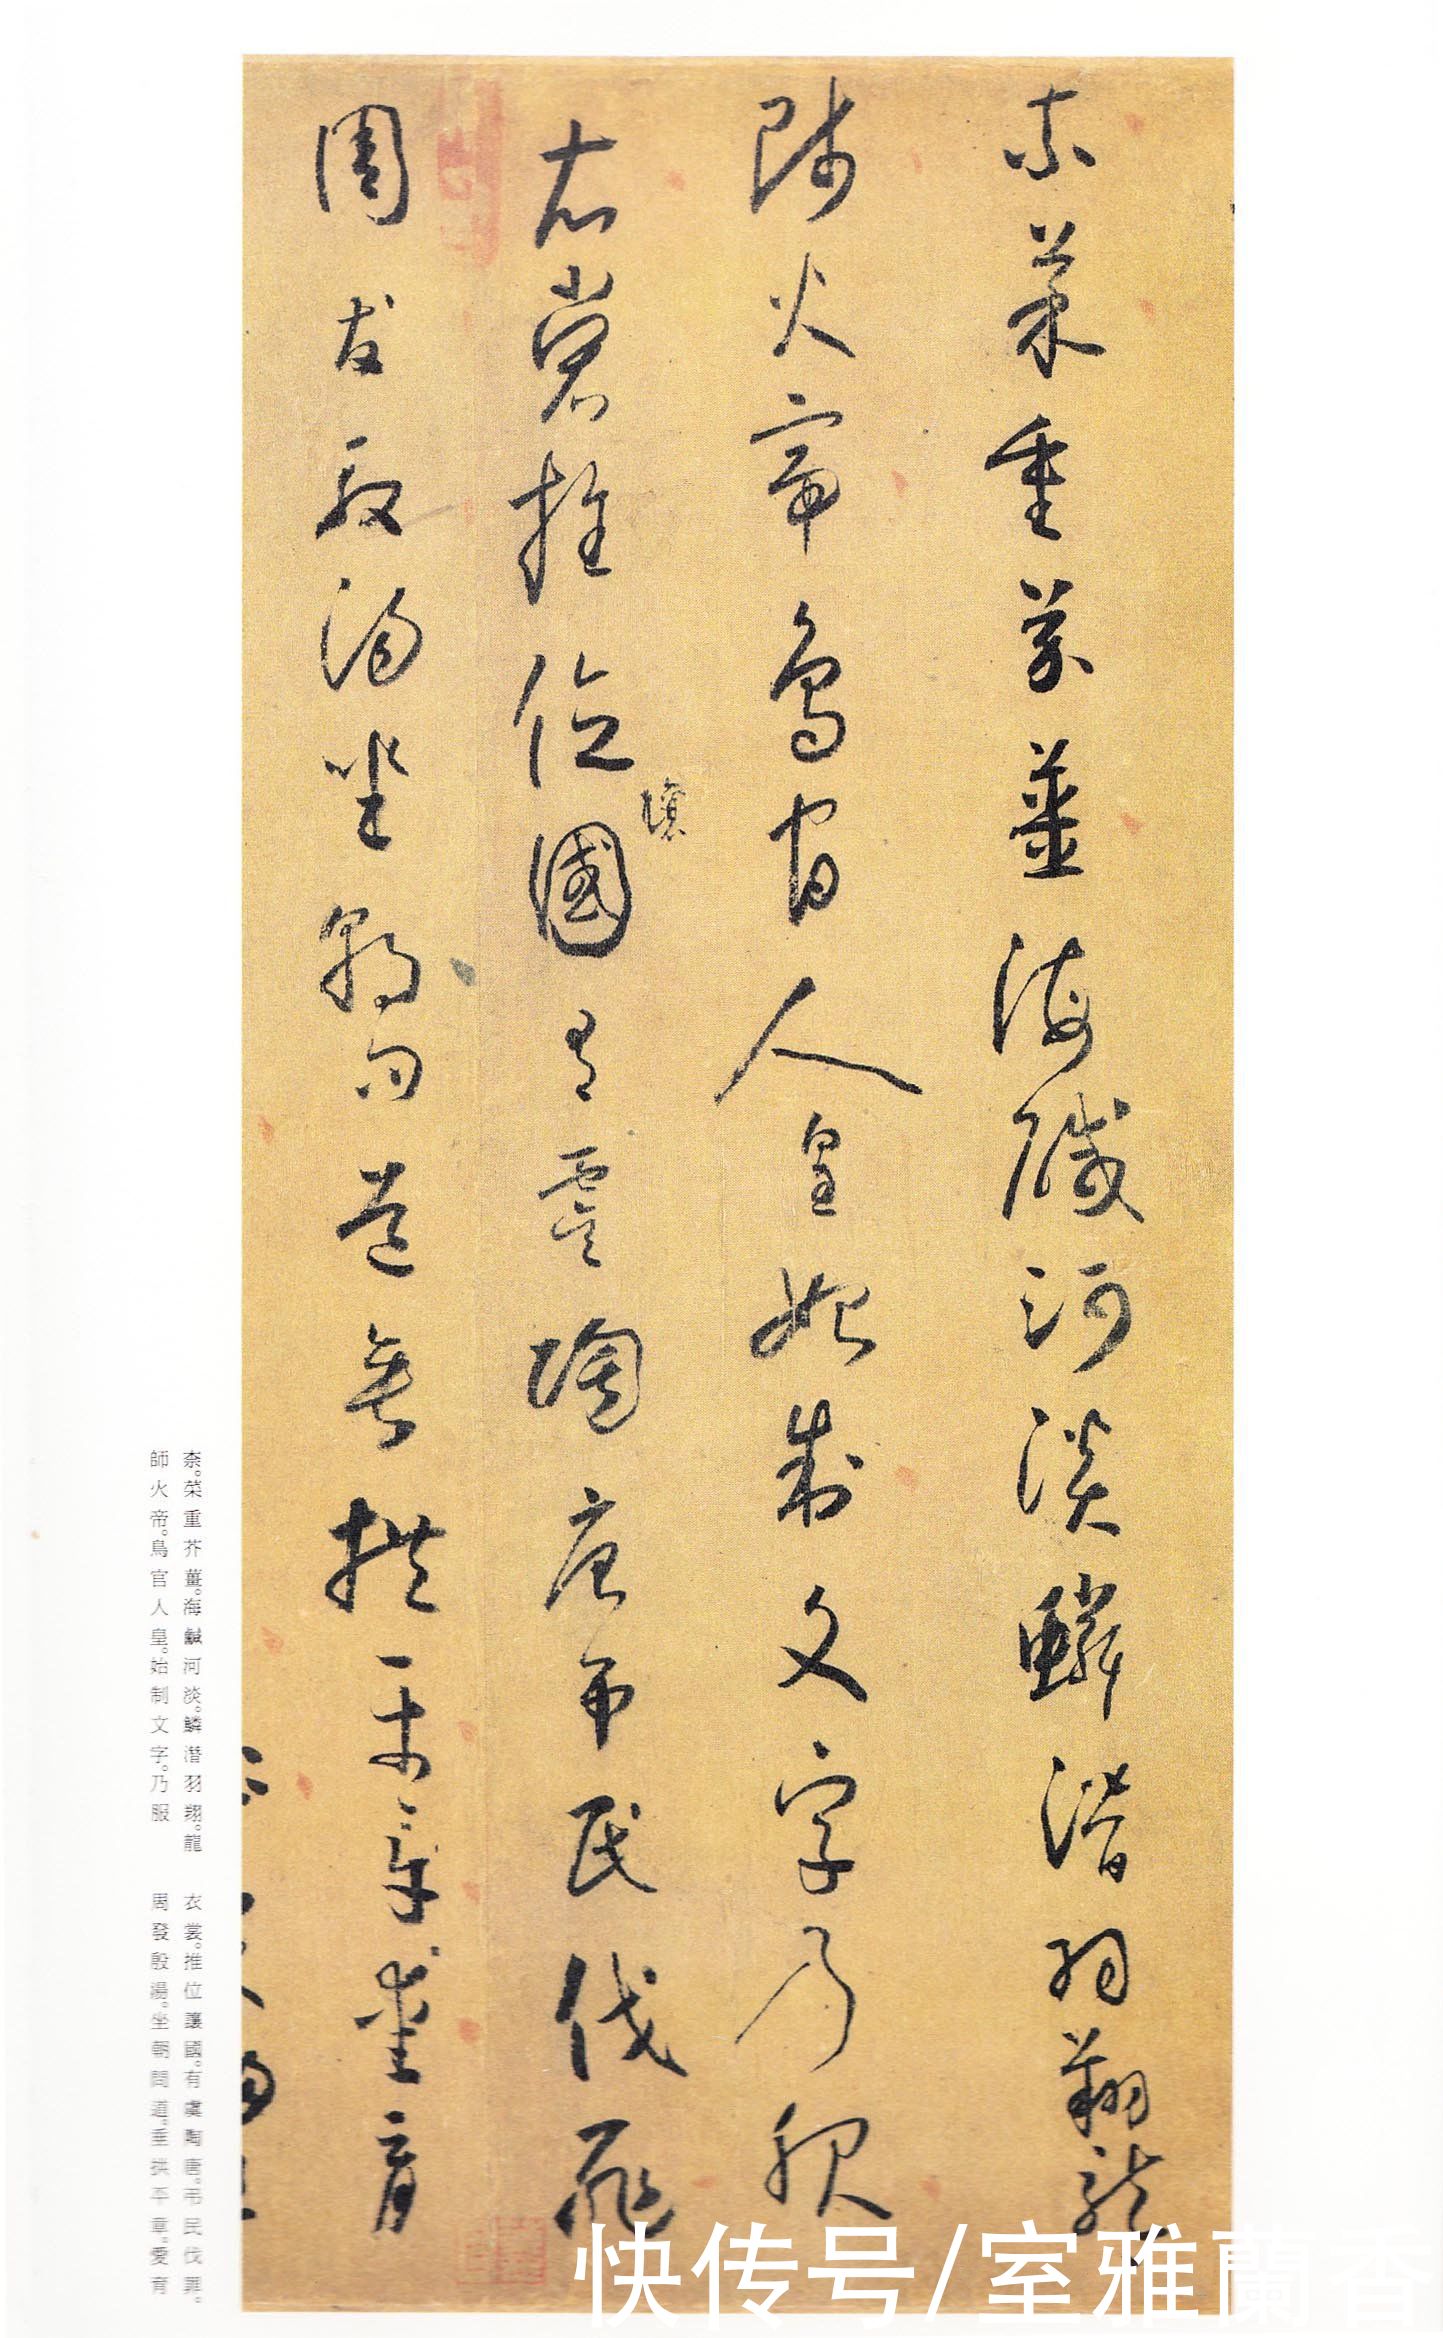 柰菜重芥薑海鹹河淡鱗潛羽翔龍
師火帝鳥官人皇始制文字乃服
衣裳推位國有虞陶唐吊民伐罪
讓
周發殷湯坐朝問道垂拱平章愛育
柰。菜重芥薑。海鹹河淡。鱗潛羽翔。龍
師火帝。鳥官人皇。始制文字。乃服
衣裳。推位讓國。有虞陶唐。吊民伐罪。
周發殷湯。坐朝問道。垂拱平章。愛育
快传号/室雅蘭香